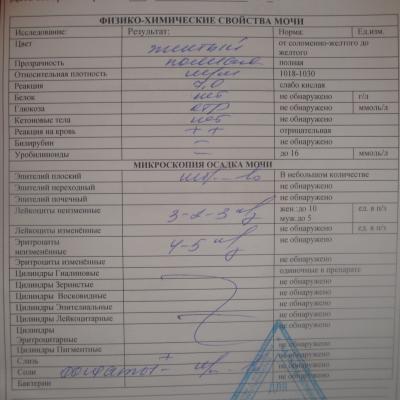 ФИЗИКО-ХИМИЧЕСКИЕ СВОЙСТВА МОЧИ
Исследование: Результат: Норма: Ед.изм.
Цвет желтый от соломенно-желтого до желтого
Прозрачность полная полная
Относительная плотность 1018-1030
Реакция 7,0 слабо кислая
Белок нет не обнаружено г/л
Глюкоза отр не обнаружено ммоль/л
Кетоновые тела нет не обнаружено
Реакция на кровь ++ отрицательная
Билирубин – не обнаружено
Уробилиноиды – до 16 ммоль/л
МИКРОСКОПИЯ ОСАДКА МОЧИ
Эпителий плоский В небольшом количестве
Эпителий переходный не обнаружено
Эпителий почечный не обнаружено
Лейкоциты неизменные 2-2-3 жен.:до 10 муж.до 5 ед. в п/з
Лейкоциты изменённые не обнаружено ед. в п/з
Эритроциты неизменённые 4-5 не обнаружено
Эритроциты изменённые не обнаружено
Цилиндры Гиалиновые одиночные в препарате
Цилиндры Зернистые не обнаружено
Цилиндры Восковидные не обнаружено
Цилиндры Эпителиальные не обнаружено
Цилиндры Лейкоцитарные не обнаружено
Цилиндры Эритроцитарные не обнаружено
Цилиндры Пигментные не обнаружено
Слизь + не обнаружено
Соли не обнаружено
Бактерии не обнаружено
ДЛЯ